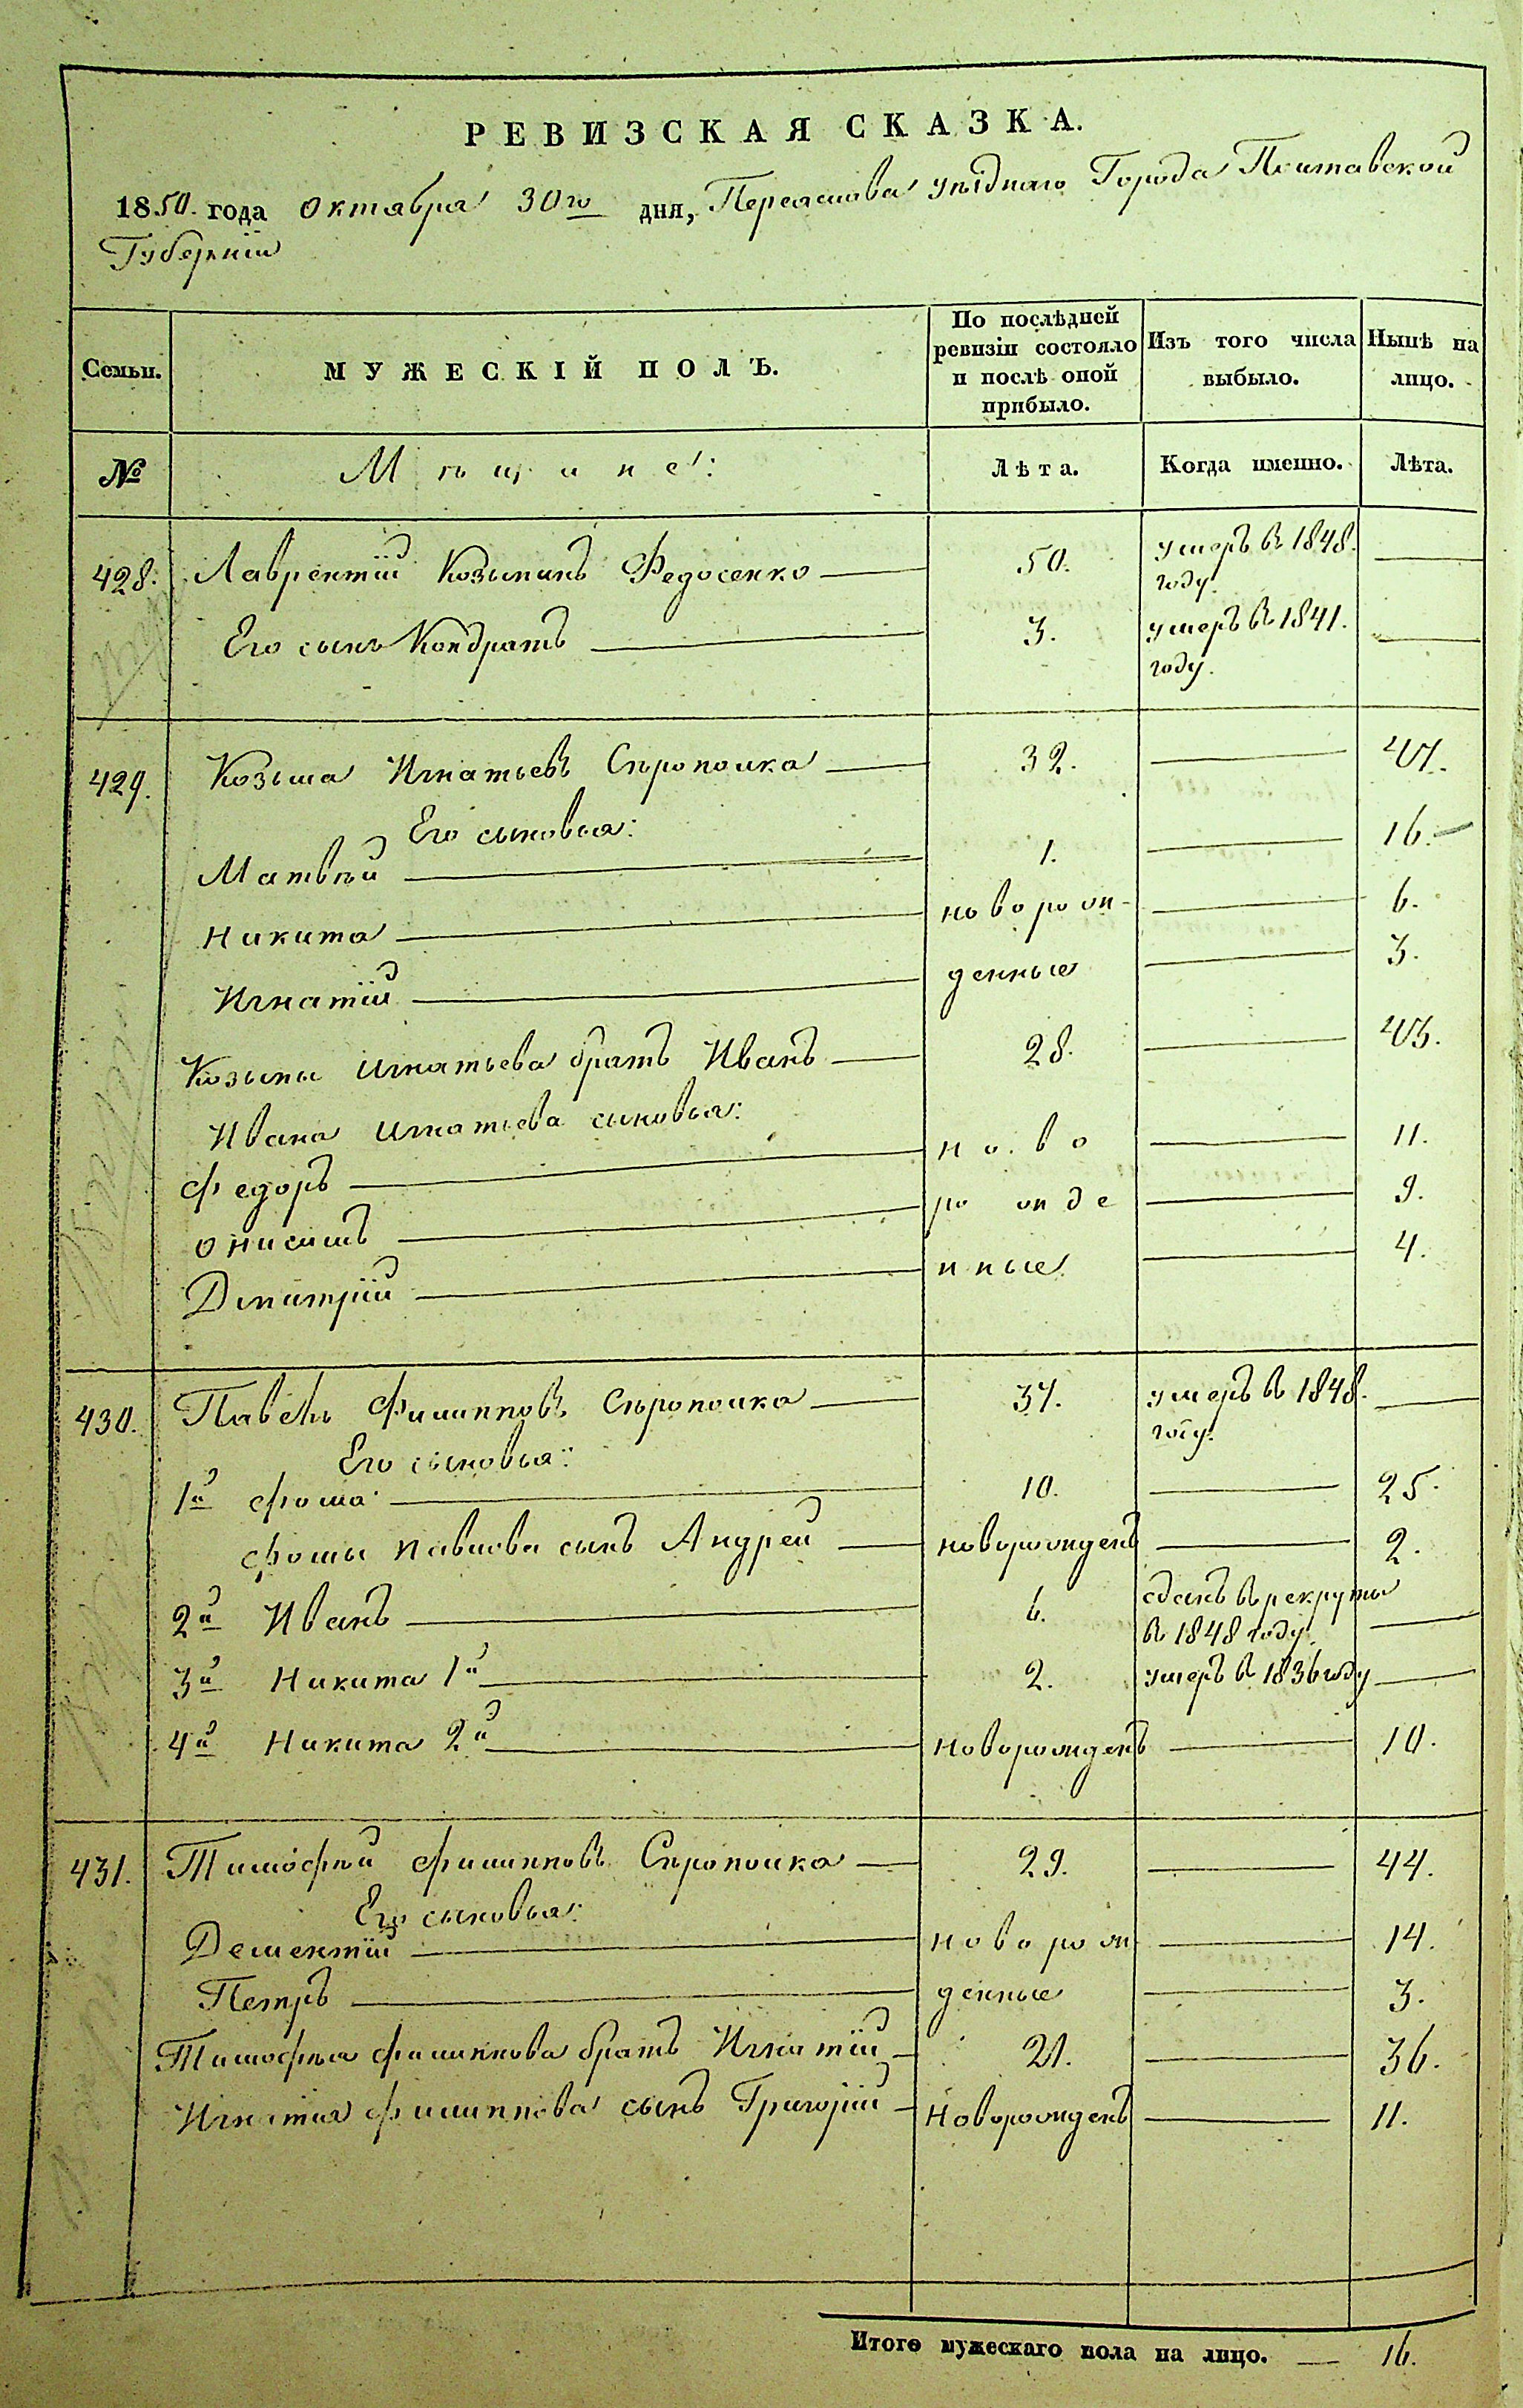 РЕВИЗСКАЯ СКАЗКА.
1850. года Октября 30го дня, Переяслава уѣзднаго Города Полтавской
Губерніи
Семьи. МУЖЕСКІЙ ПОЛЪ. По послѣдней ревизіи состояло и послѣ оной прибыло. Изъ того числа выбыло. Нынѣ на лицо.
№ Мѣщане: Лѣта. Когда именно. Лѣта.
428. Лаврентій Козьминъ Федосенко — 50. умеръ в 1848. году. —
Его сынъ Кондратъ — 3. умеръ в 1841. году. —
429. Козьма Игнатьевъ Сѣрополка — 32. — 47.
Его сыновья:
Матвѣй — 1. — 16. —
Никита — новорож- — 6.
Игнатій — денные — 3.
Козьмы Игнатьева братъ Иванъ — 28. — 43.
Ивана Игнатьева сыновья:
Федоръ — ново — 11.
Онисимъ — рожде — 9.
Дмитрій — нные — 4.
430. Павелъ Филипповъ Сѣрополка — 37. умеръ в 1848. году. —
Его сыновья:
1й Фома — 10. — 25.
Фомы Павлова сынъ Андрей — новорожденъ — 2.
2й Иванъ — 6. сданъ в рекруты в 1848 году. —
3й Никита 1й — 2. умеръ в 1836 году —
4й Никита 2й — новорожденъ — 10.
431. Тимофѣй Филипповъ Сѣрополка — 29. — 44.
Его сыновья:
Дементій — новорож — 14.
Петръ — денные — 3.
Тимофѣя Филиппова братъ Игнатій — 21. — 36.
Игнатія Филиппова сынъ Григорій — новорожденъ — 11.
Итого мужескаго пола на лицо. — 16.